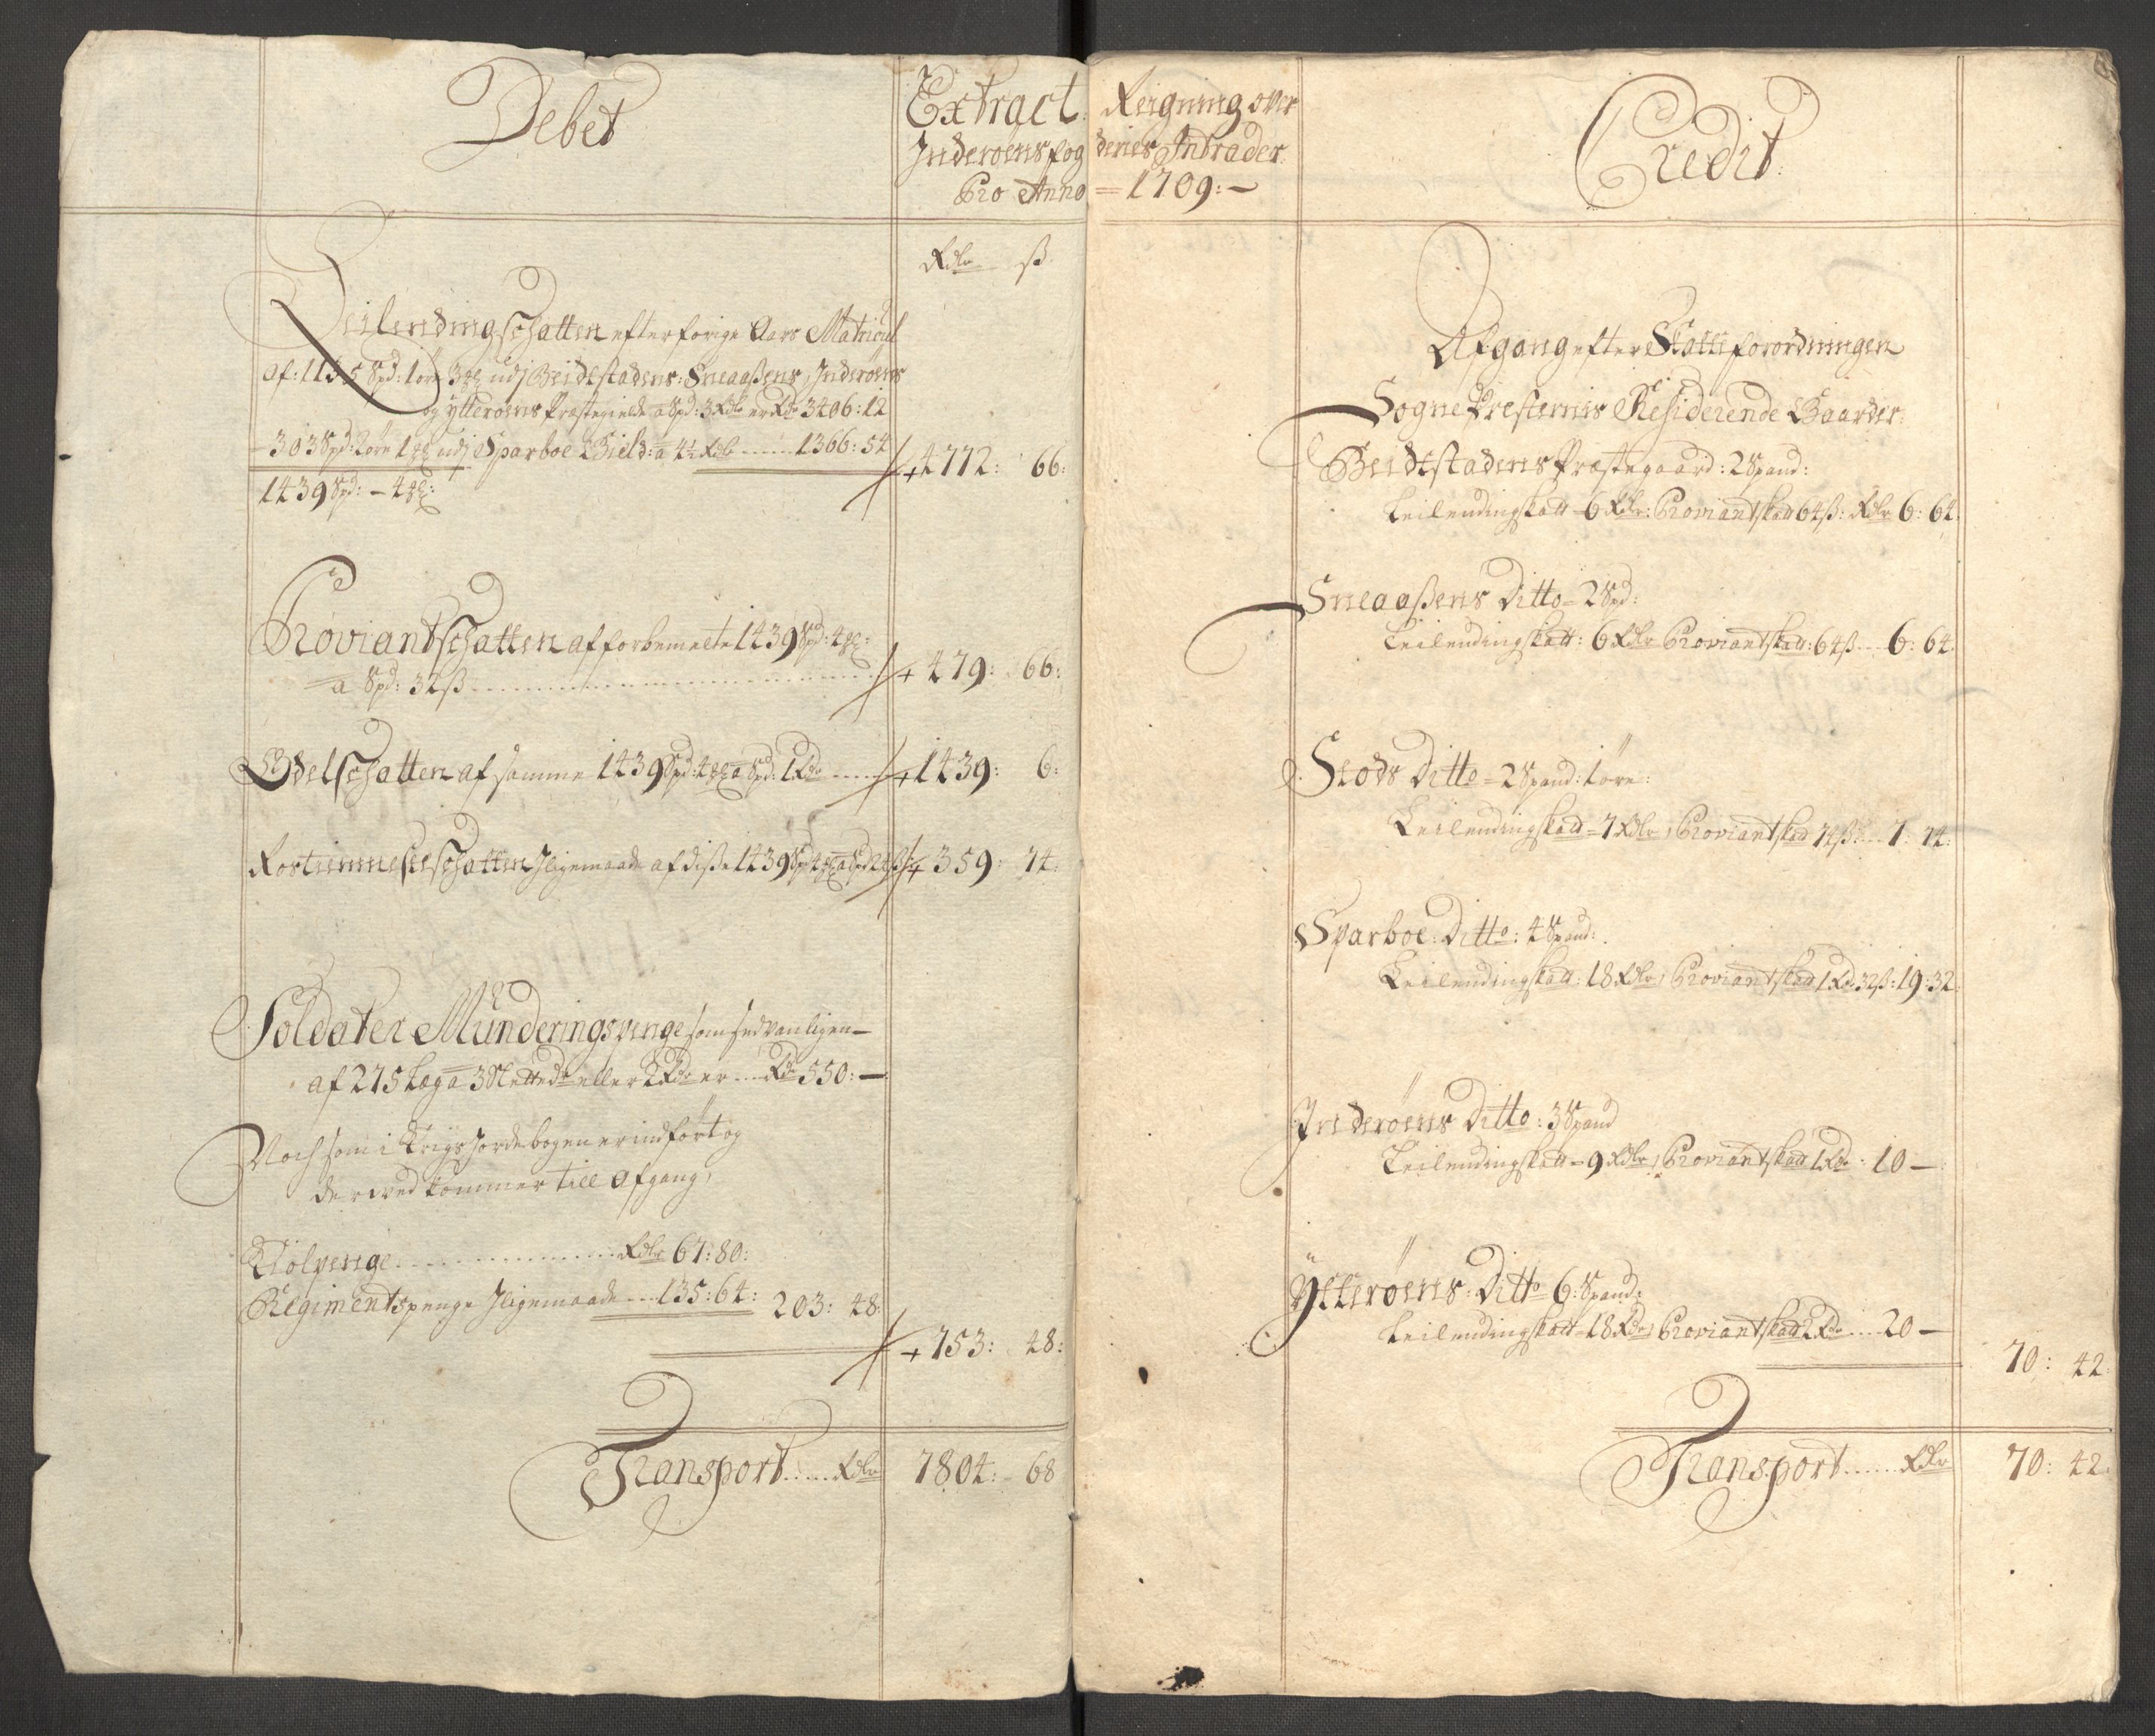 Debet
Extract Reigning over
Inderøens fogderies Intrader
Pro Anno = 1709: —
Rdlr ß
Leilendingschatten efter forrige Aars Matricul
af: 1135 Spd: 1 øre 3 udj Beidstadens: Sneaaßens, Inderøens
og Ytterøens Præstegield a Spd: 3 Rdlr er Rdr 3406: 12
303 Spd: 2 øre 1 udj Sparboe Gield: a 4½ Rdlr ...... 1366: 54
4772: 66:
1439 Spd: — 4
Proviantschatten af forbemelte 1439 Spd: 4
a Spd: 32 ß ...... 479: 66:
Odelschatten af samme 1439 Spd: 4 a Spd: 1 Rdr ...... 1439: 6:
Rostienneste Schatten Jligemaade af diße 1439 Spd 4 a Spd 24 ß 359: 74:
Soldater Münderingspenge som sedvanligen —
af 275 Læg a 3 Slettedr eller 2 Rdr er ... Rdr 550: —
Noch som i Krigs Jordebogen er indført og
derved kommer till Afgang,
Kiolpenge ...... Rdlr 67: 80:
Regimentspenge Jligemaade ... 135: 64: 203: 48:
753: 48:
Transport ...... Rdlr 7804: 68
Credit
Afgang efter Skatteforordningen
Sogne Presternis Residerende Gaarder
Beidtstadens Præstegaard: 2 Spand:
Leilendingskatt 6 Rdlr: Proviantskatt 64 ß: Rdlr 6: 64
Sneaaßens Ditto = 2 Spd:
Leilendingskatt: 6 Rdlr Proviantskatt: 64 ß ... 6: 64
Stods Ditto = 2 Spand: 1 øre:
Leilendingskatt = 7 Rdlr, Proviantskatt 74 ß ... 7: 74:
Sparboe: Ditto: 4 Spand:
Leilendingskatt: 18 Rdlr, Proviantskatt 1 Rdr 32 ß: 19: 32
Inderøens Ditto: 3 Spand
Leilendingskatt = 9 Rdlr, Proviantskatt 1 Rdr: 10 —
Ytterøens: Ditto 6: Spand:
Leilendingskatt = 18 Rdr, Proviantskatt 2 Rdr .... 20 —
70: 42
Transport ...... Rdlr 70: 42